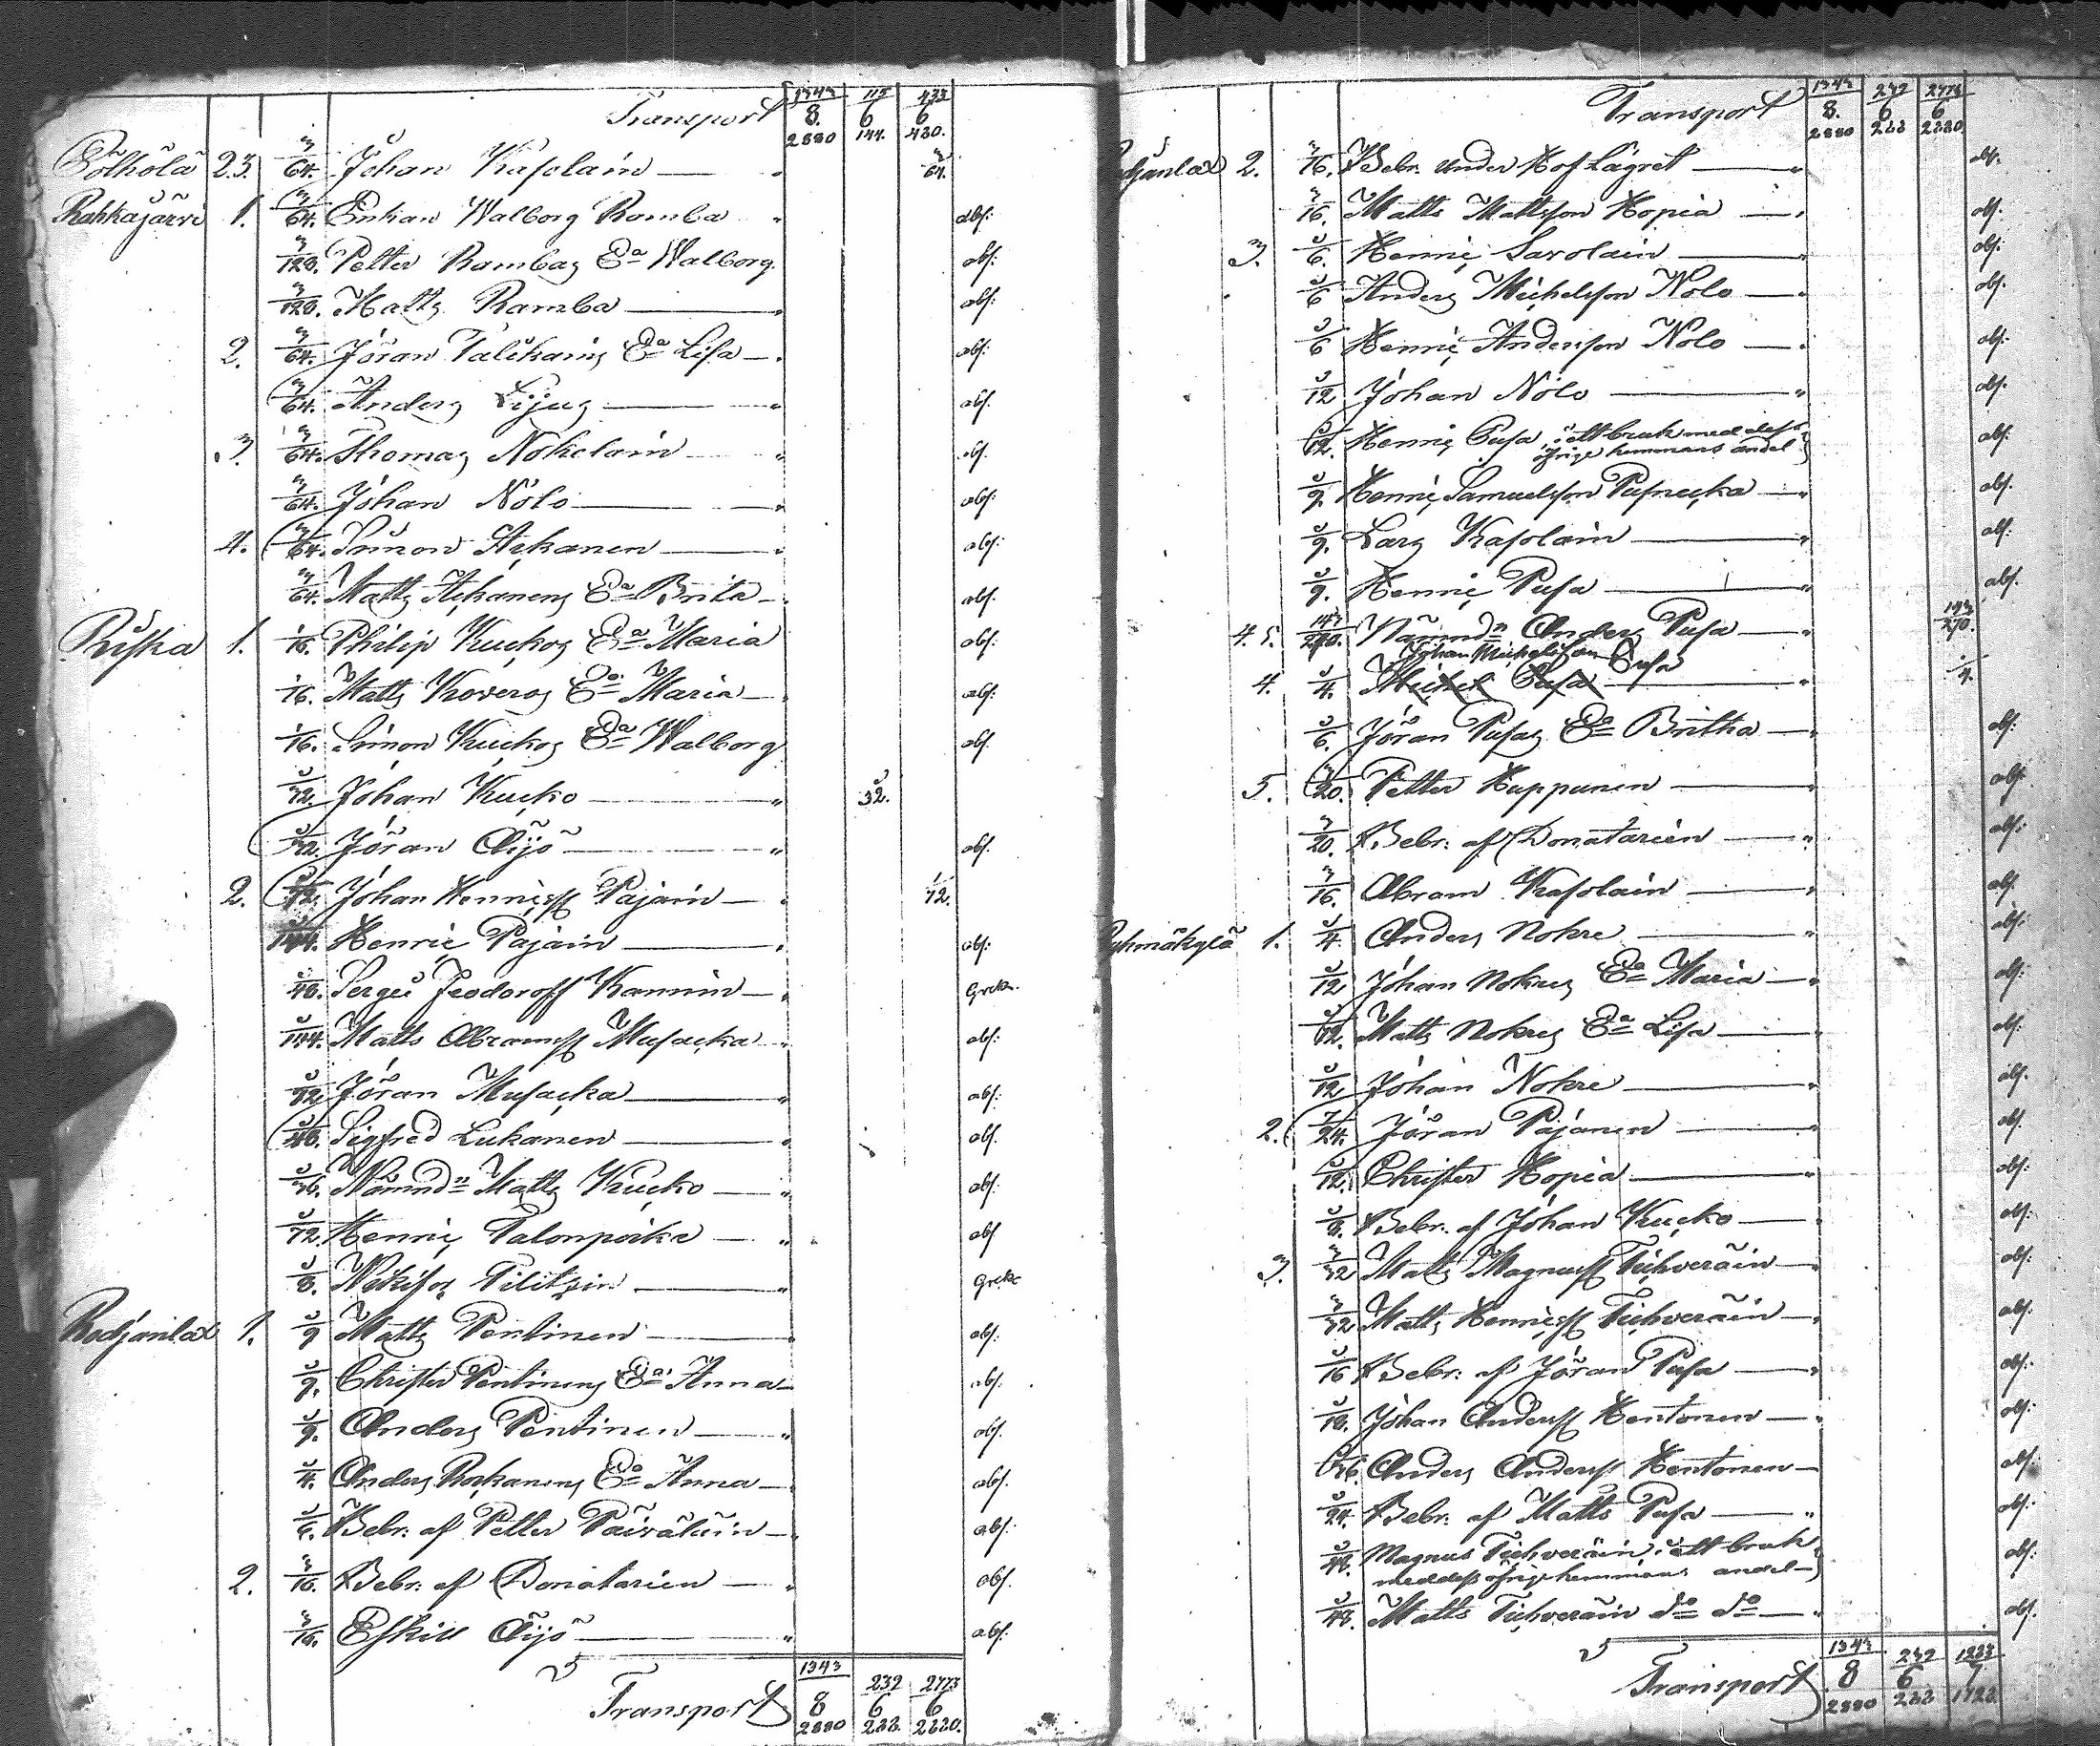 Transport 8 6 6
2880 144. 480.
Pölhölä 2.3. 3/64. Johan Kasolain
Rahkajärvi 1. 3/64. Enkan Walborg Ramba abs:
3/128. Petter Rambas Ea Walborg abs:
3/128. Matts Ramba abs:
2. 3/64. Jöran Talikains Ea Lisa abs:
3/64. Anders Lijus abs.
3. 3/64. Thomas Nokelain abs.
3/64. Johan Nolo abs:
4. 3/64. Simon Ackanen abs:
3/64. Matts Ackanens Ea Brita abs.
Ruska 1. 1/16. Philip Kuckos Ea Maria abs:
1/16. Matts Koveros Ea Maria abs:
1/16. Simon Kuckos Ea Walborg abs.
Johan Kucko
Jöran Äijö abs.
2. Johan Henricss Pajain
Henric Pajain abs:
1/48. Sergei Feodoroff Kamnin Grek.
1/144. Matts Abramss Musacka abs:
1/72. Jöran Musacka abs:
1/48. Sigfred Lukanen abs.
1/36. Nämndn Matts Kucko abs:
1/72. Henric Talonpoika abs
1/8. Nikifor Tilitzin Grek.
Radjanlax 1. 1/9 Matts Pentinen abs:
1/9. Christer Pentinens Ea Anna abs.
1/9. Anders Pentinen abs.
1/4. Anders Rackanens Ea Anna abs.
1/6. Bebr: af Petter Päiväläin abs:
2. 3/16. Bebr: af Donatarien abs.
3/16. Eskill Äijö abs:
Transport 8 6 6
2880 288. 2880.
Transport 8. 6 6
2880 288 2880.
Radjanlax 2. 3/16. Bebr. under Hof Lägret abs:
3/16. Matts Mattsson Hopia abs.
3. 1/6. Henric Savolain abs:
1/6 Anders Michelsson Nolo abs.
1/6 Henric Andersson Nolo abs.
1/12 Johan Nolo abs.
1/12. Henric Pusa, i ett bruk med dess
öfrige hemmans andel abs.
1/9. Henric Samuelsson Pusnecka abs.
1/9. Lars Kasolain abs:
1/9. Henric Pusa abs.
4.5. 143/270. Nämndn Anders Pusa 143/270.
Johan Michelsson Pusa
4. 1/4. Michel Pusa 1/4.
1/6. Jöran Pusas Ea Britha abs:
5. 3/20. Petter Huppunen abs.
3/20. Bebr: af Donatarien abs:
3/16. Abram Kasolain abs.
1. 1/4. Anders Nokre abs:
1/12 Johan Nokres Ea Maria abs:
1/12. Matts Nokres Ea Lisa abs.
1/12 Johan Nokre abs.
2. 7/24. Jöran Pajanen abs.
1/12. Christer Hopia abs:
1/8. Bebr: af Johan Kucko abs:
3. 3/32 Matts Magnuss Tichveräin abs:
3/32 Matts Henricss Tichveräin abs.
1/16 Bebr: af Jöran Pusa abs:
Johan Anderss Hentonen abs:
Anders Anderss Hentonen abs:
1/24. Bebr: af Matts Pusa abs:
1/48. Magnus Tichveräin i ett bruk
med dess öfrige hemmans andel abs:
1/48. Matts Tichveräin do do abs.
Transport 8 6 7
2880 288 1728.